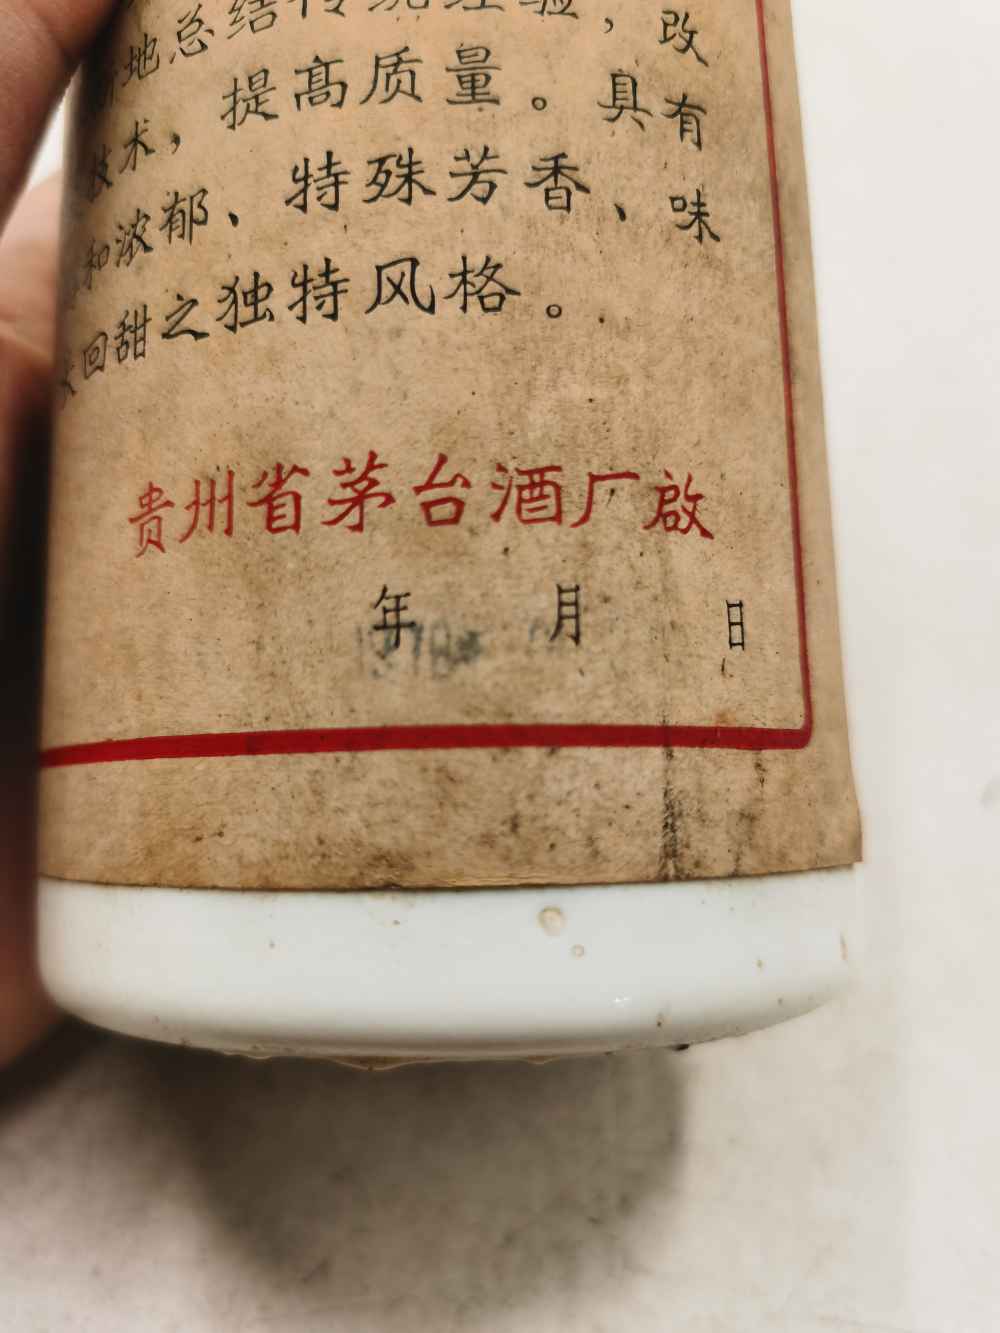 地总结传统经验，改
技术，提高质量。具有
和浓郁、特殊芳香、味
回甜之独特风格。
贵州省茅台酒厂啟
年 月 日